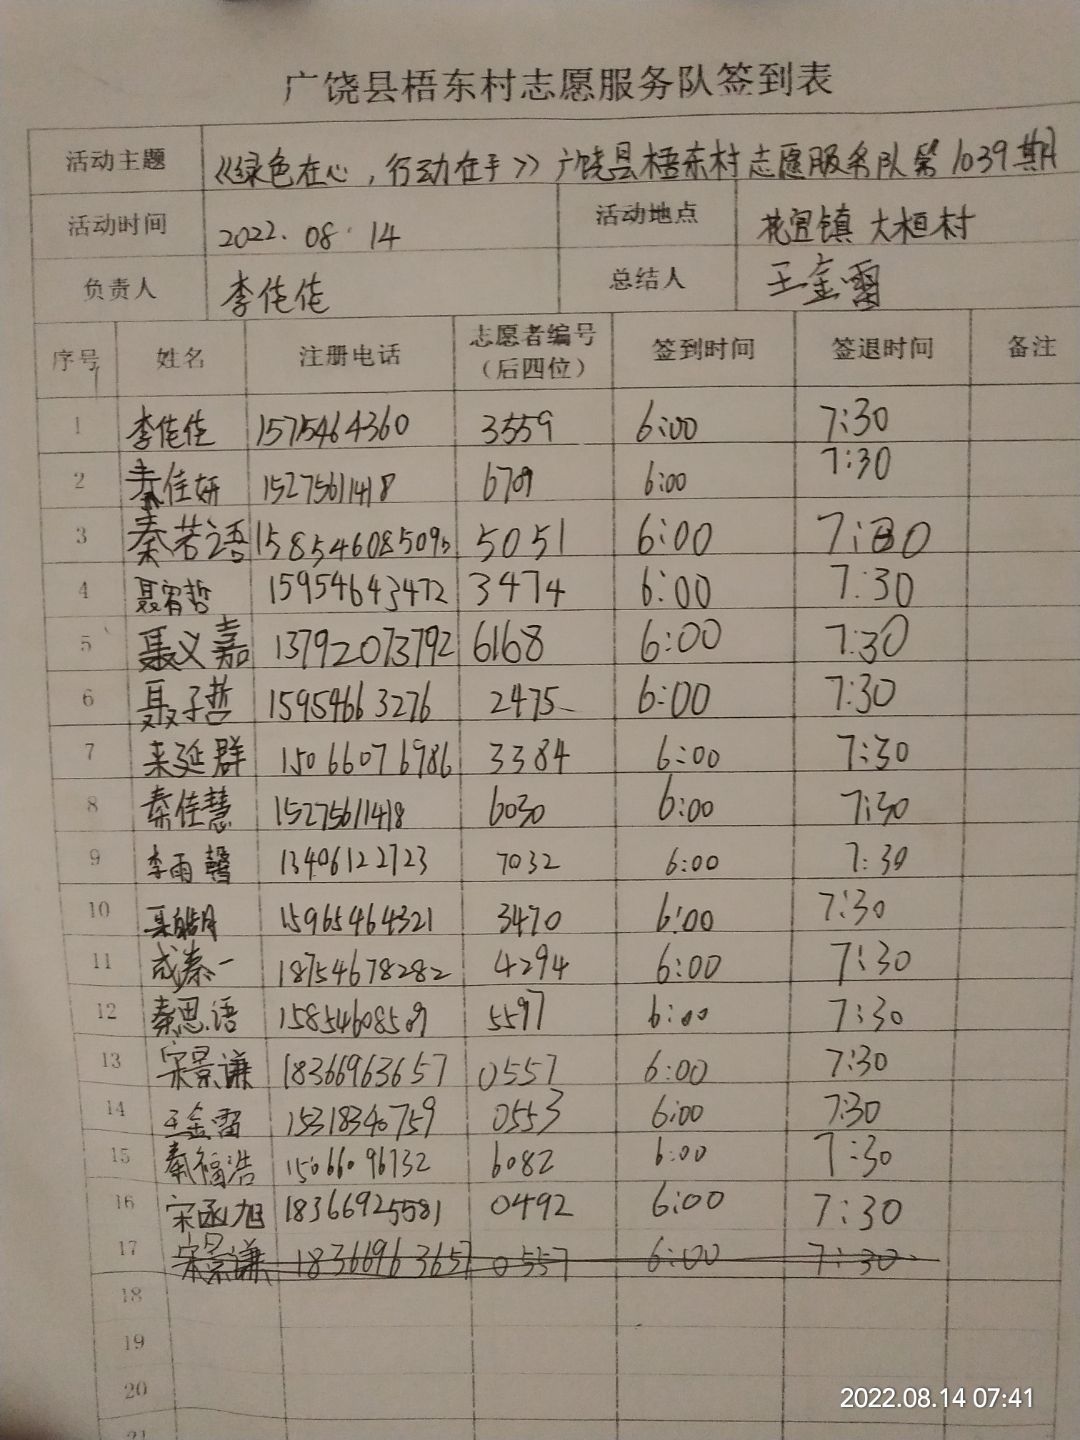 广饶县梧东村志愿服务队签到表
活动主题 《绿色在心,行动在手》广饶县梧东村志愿服务队第1039期
活动时间 2022.08.14 活动地点 花官镇 大桓村
负责人 李佬佬 总结人 王金雷
序号 姓名 注册电话 志愿者编号（后四位） 签到时间 签退时间 备注
1 李佬佬 15715464360 3559 6:00 7:30
2 秦佳妍 15275611418 6709 6:00 7:30
3 秦若语 5051 6:00 7:30
4 聂宥哲 15954643472 3474 6:00 7:30
5 聂义嘉 13792073792 6168 6:00 7:30
6 聂子哲 15954663276 2475 6:00 7:30
7 来延群 15066076986 3384 6:00 7:30
8 秦佳慧 15275611418 6030 6:00 7:30
9 李雨馨 13406122723 7032 6:00 7:30
10 15965464321 3470 6:00 7:30
11 成秦一 18754678282 4294 6:00 7:30
12 秦思语 15854608509 5597 6:00 7:30
13 宋景谦 18366963657 0557 6:00 7:30
14 王金雷 15318340759 0553 6:00 7:30
15 秦福浩 15066096732 6082 6:00 7:30
16 宋函旭 18366925581 0492 6:00 7:30
17 宋景谦 18366963657 0557 6:00 7:30
18
19
20
21
2022.08.14 07:41